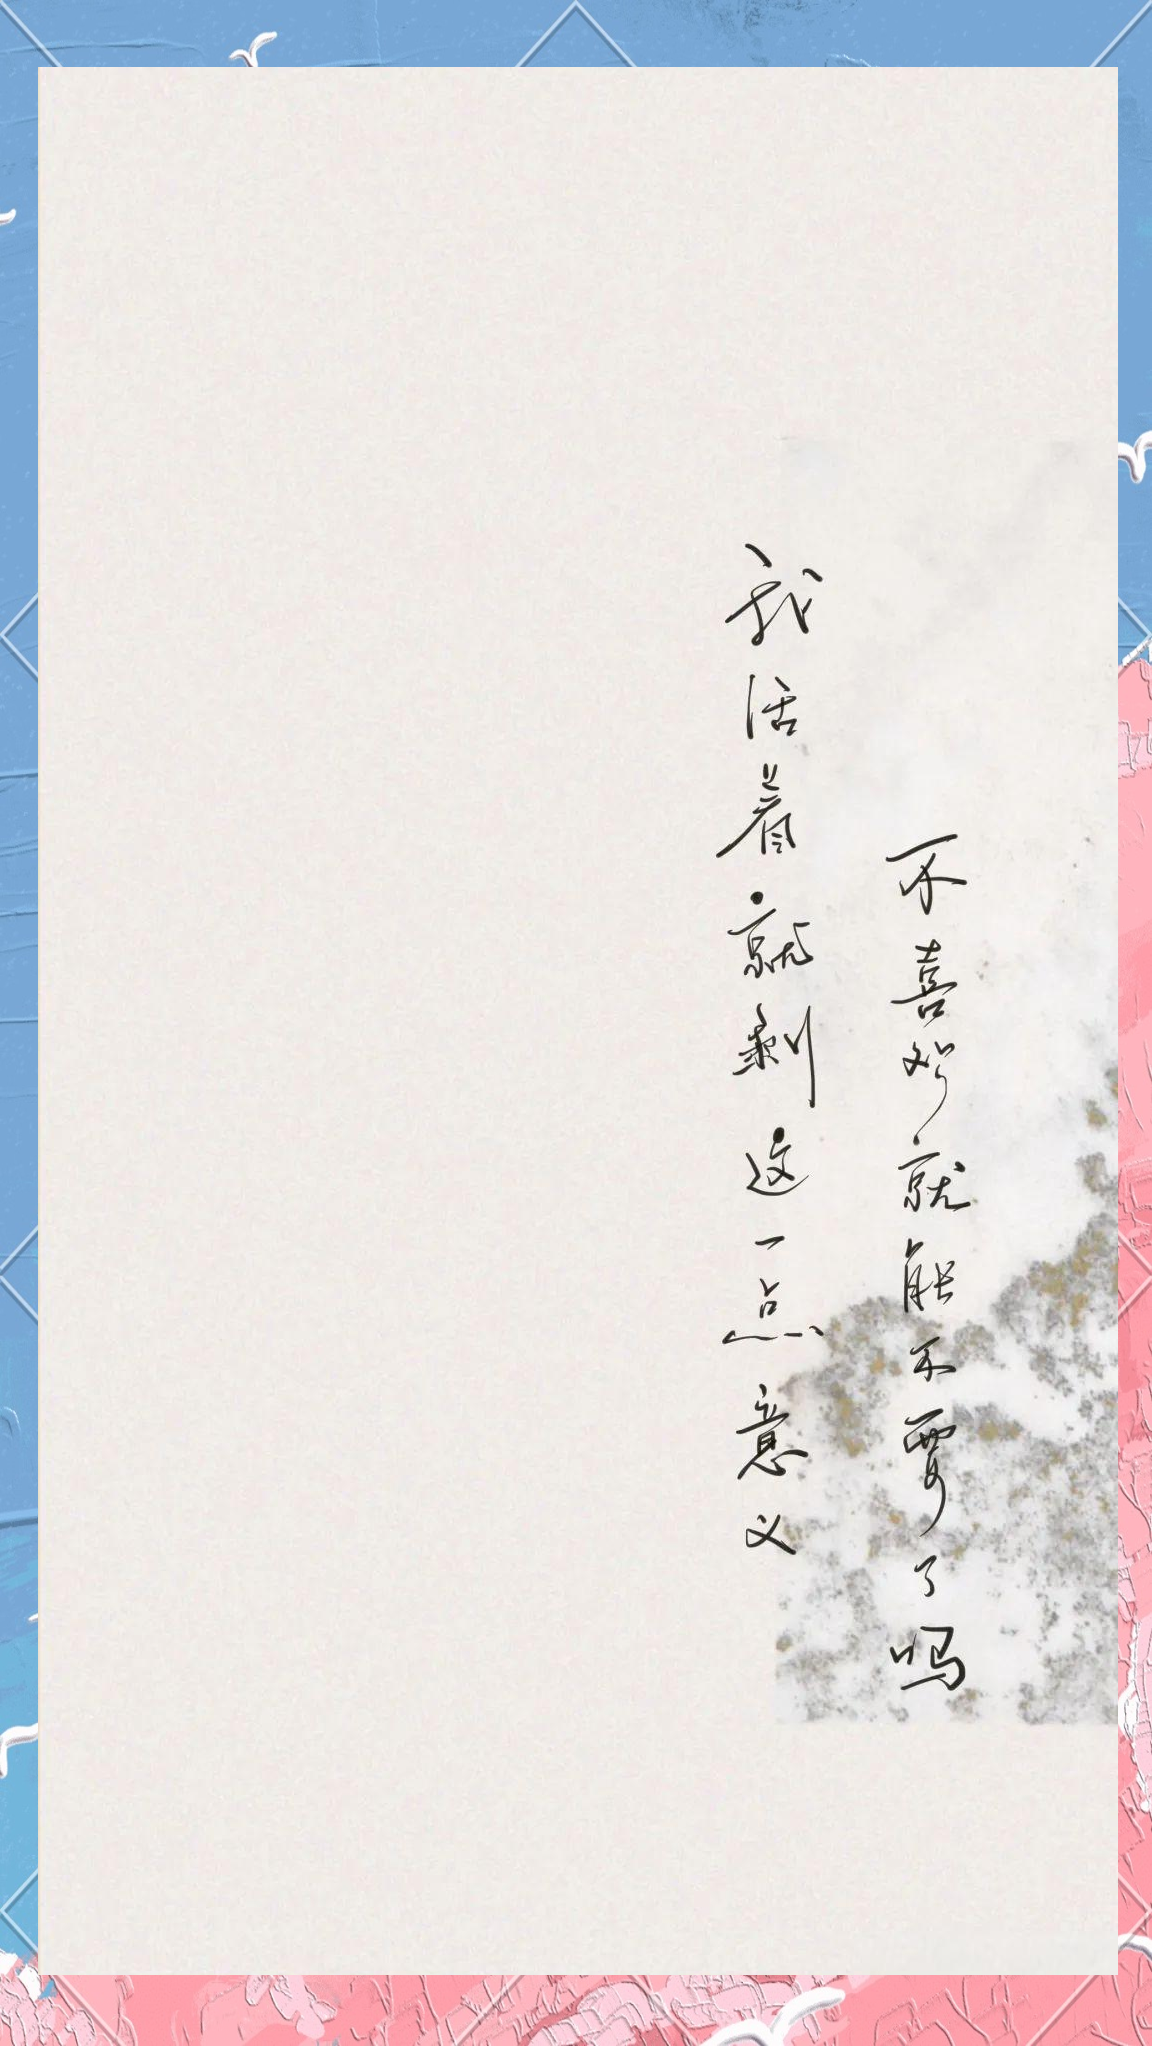 不喜欢就能不要了吗
我活着就剩这一点意义